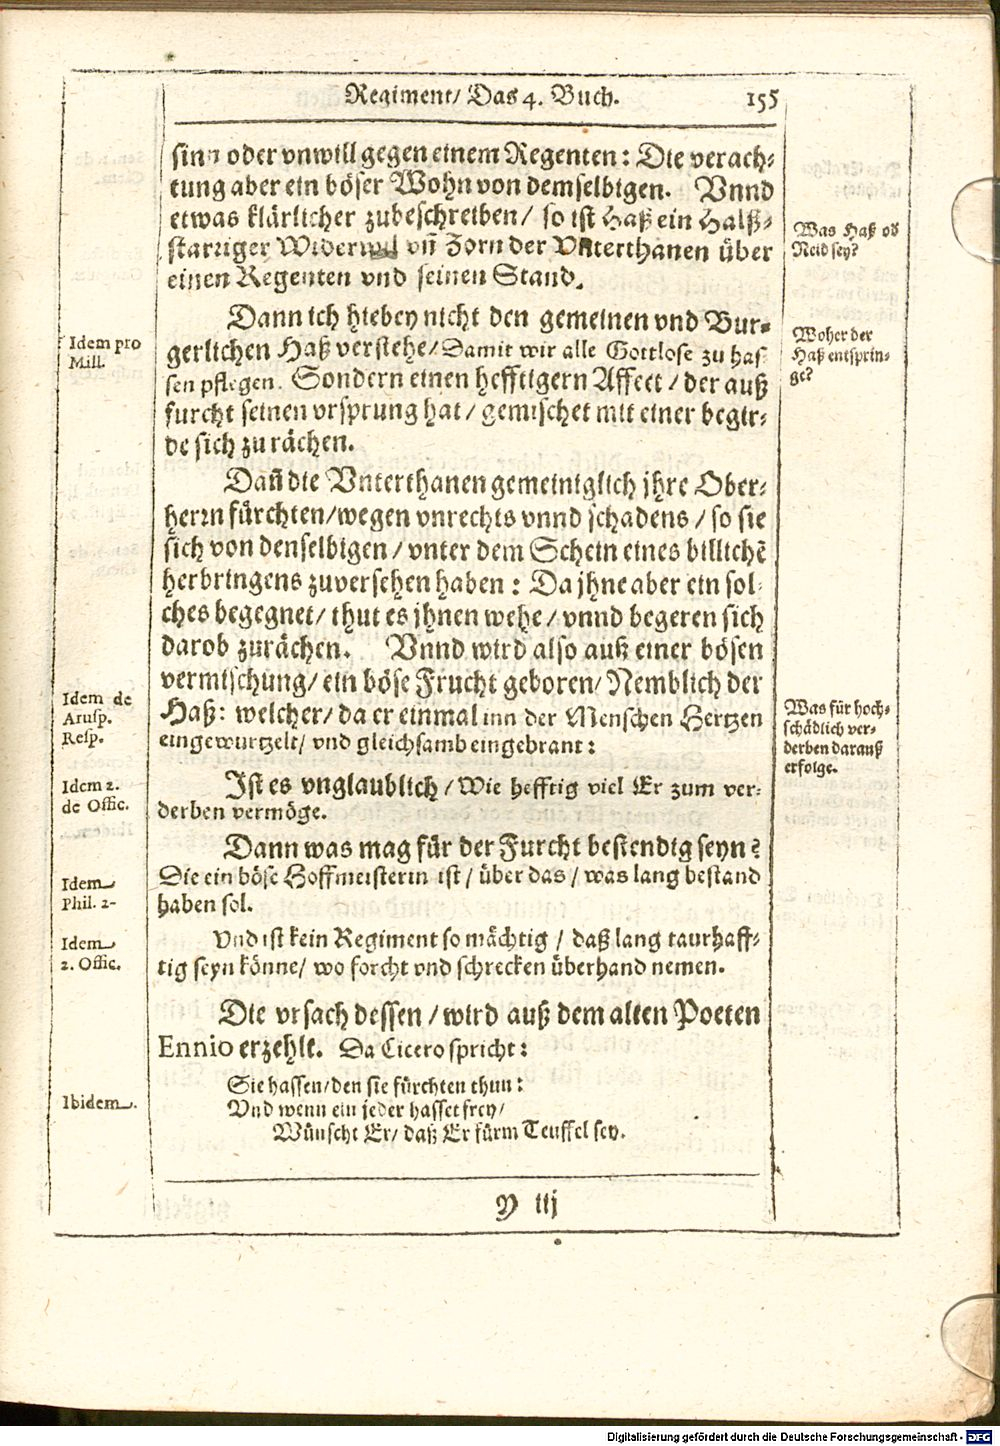 Regiment/ Das 4. Buch. 155
sinn oder vnwill gegen einem Regenten: Die verach-
tung aber ein böser Wohn von demselbigen. Vnnd
etwas klärlicher zubeschreiben/ so ist Haß ein Halß-
starriger Widerwil vñ Zorn der Vnterthanen über
einen Regenten vnd seinen Stand.
Was Haß od
Neid sey?
Dann ich hiebey nicht den gemeinen vnd Bur-
gerlichen Haß verstehe/ Damit wir alle Gottlose zu has-
sen pflegen. Sondern einen hefftigern Affect/ der auß
furcht seinen vrsprung hat/ gemischet mit einer begir-
de sich zu rächen.
Idem pro
Mill.
Woher der
Haß entsprin-
ge?
Dañ die Vnterthanen gemeiniglich jhre Ober-
herrn fürchten/ wegen vnrechts vnnd schadens/ so sie
sich von denselbigen/ vnter dem Schein eines billichẽ
herbringens zuversehen haben: Da jhne aber ein sol-
ches begegnet/ thut es jhnen wehe/ vnnd begeren sich
darob zurächen. Vnnd wird also auß einer bösen
vermischung/ ein böse Frucht geboren/ Nemblich der
Haß: welcher/ da er einmal inn der Menschen Hertzen
eingewurtzelt/ vnd gleichsamb eingebrant:
Idem de
Arusp.
Resp.
Was für hoch-
schädlich ver-
derben darauß
erfolge.
Ist es vnglaublich/ Wie hefftig viel Er zum ver-
derben vermöge.
Idem 2.
de Offic.
Dann was mag für der Furcht bestendig seyn?
Die ein böse Hoffmeisterin ist/ über das/ was lang bestand
haben sol.
Idem
Phil. 2-
Vnd ist kein Regiment so mächtig/ daß lang taurhaff-
tig seyn könne/ wo forcht vnd schrecken überhand nemen.
Idem
2. Offic.
Die vrsach dessen/ wird auß dem alten Poeten
Ennio erzehlt. Da Cicero spricht:
Sie hassen/ den sie fürchten thun:
Vnd wenn ein jeder hasset frey/
Wünscht Er/ daß Er fürm Teuffel sey.
Ibidem.
Y iij
Digitalisierung gefördert durch die Deutsche Forschungsgemeinschaft - DFG